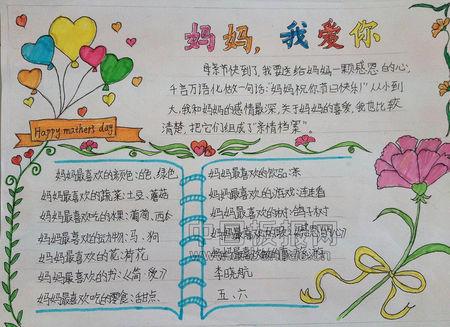 妈妈,我爱你
母亲节快到了,我要送给妈妈一颗感恩的心,
千言万语化做一句话:"妈妈祝你节日快乐!"从小到
大,我和妈妈的感情最深,关于妈妈的喜爱,我也比较
清楚,把它们组成了"亲情档案"。
Happy mathers day
妈妈最喜欢的颜色:白色、绿色
妈妈最喜欢的蔬菜:土豆、蘑菇
妈妈最喜欢吃的水果:葡萄、西瓜
妈妈最喜欢的动物:马、狗
妈妈最喜欢的花:荷花
妈妈最喜欢的书:
妈妈最喜欢吃的零食:甜点
妈妈最喜欢的饮品:茶
妈妈最喜欢的游戏:连连看
妈妈最喜欢的树:鸽子树
妈妈最喜欢的
妈妈最喜欢做的事:
李晓航
五、六